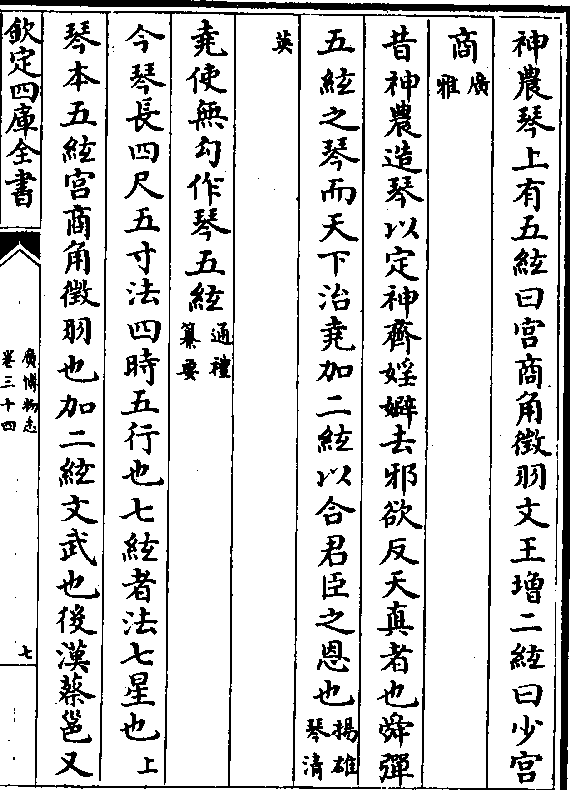 神農琴上有五絃曰宮商角徵羽文王增二絃曰少宮
商廣雅
昔神農造琴以定神齊婬嬖去邪欲反天真者也舜彈
五絃之琴而天下治堯加二絃以合君臣之恩也揚雄琴清
英
堯使無勾作琴五絃通禮纂要
今琴長四尺五寸法四時五行也七絃者法七星也上
琴本五絃宮商角徵羽也加二絃文武也後漢蔡邕又
欽定四庫全書
廣博物志
卷三十四
七